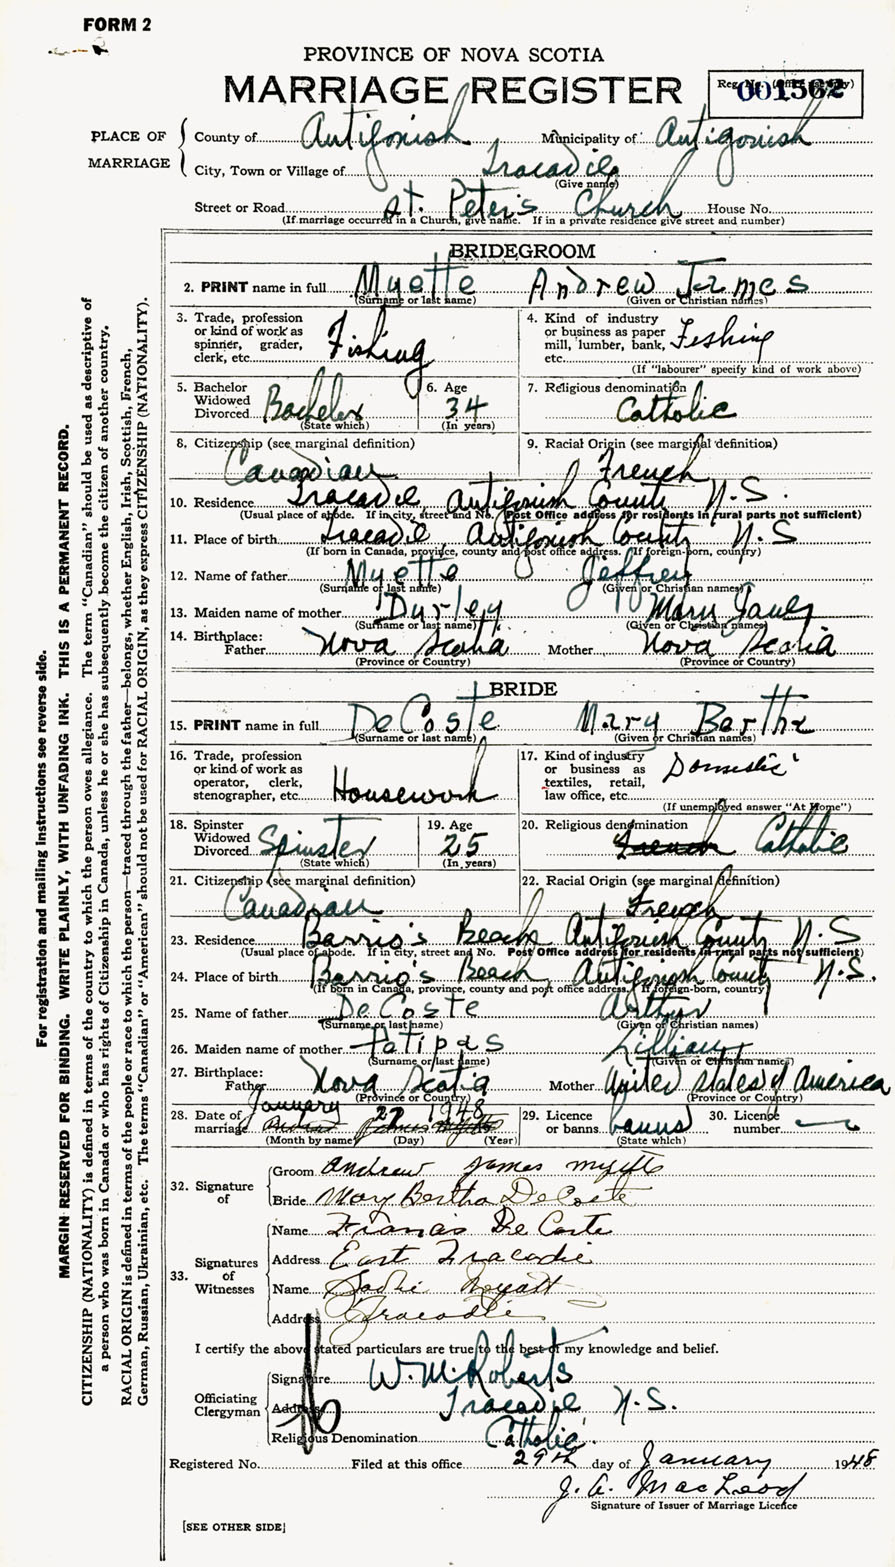 FORM 2
PROVINCE OF NOVA SCOTIA
MARRIAGE REGISTER
Reg. No. (Office use only)
001562
PLACE OF MARRIAGE
County of Antigonish Municipality of Antigonish
City, Town or Village of Tracadie
(Give name)
Street or Road St. Peter's Church House No.
(If marriage occurred in a Church, give name. If in a private residence give street and number)
BRIDEGROOM
2. PRINT name in full Myette Andrew James
(Surname or last name) (Given or Christian names)
3. Trade, profession or kind of work as spinner, grader, clerk, etc. Fishing
4. Kind of industry or business as paper mill, lumber, bank, etc. Fishing
(If "labourer" specify kind of work above)
5. Bachelor Widowed Divorced Bachelor
(State which)
6. Age 34
(In years)
7. Religious denomination
Catholic
8. Citizenship (see marginal definition)
Canadian
9. Racial Origin (see marginal definition)
French
10. Residence Tracadie, Antigonish County N.S.
(Usual place of abode. If in city, street and No. Post Office address for residents in rural parts not sufficient)
11. Place of birth Tracadie, Antigonish County N.S
(If born in Canada, province, county and post office address. If foreign-born, country)
12. Name of father Myette Jeffrey
(Surname or last name) (Given or Christian names)
13. Maiden name of mother Durley Mary
(Surname or last name) (Given or Christian names)
14. Birthplace:
Father Nova Scotia Mother Nova Scotia
(Province or Country) (Province or Country)
BRIDE
15. PRINT name in full DeCoste Mary Bertha
(Surname or last name) (Given or Christian names)
16. Trade, profession or kind of work as operator, clerk, stenographer, etc. Housework
17. Kind of industry or business as textiles, retail, law office, etc. Domestic
(If unemployed answer "At Home")
18. Spinster Widowed Divorced Spinster
(State which)
19. Age 25
(In years)
20. Religious denomination
French Catholic
21. Citizenship (see marginal definition)
Canadian
22. Racial Origin (see marginal definition)
French
23. Residence Barrio's Beach Antigonish County N.S
(Usual place of abode. If in city, street and No. Post Office address for residents in rural parts not sufficient)
24. Place of birth Barrio's Beach, Antigonish County N.S.
(If born in Canada, province, county and post office address. If foreign-born, country)
25. Name of father DeCoste Arthur
(Surname or last name) (Given or Christian names)
26. Maiden name of mother Petipas Lillian
(Surname or last name) (Given or Christian names)
27. Birthplace:
Father Nova Scotia Mother United States of America
(Province or Country) (Province or Country)
28. Date of marriage January 27 1948
(Month by name) (Day) (Year)
29. Licence or banns banns
(State which)
30. Licence number
32. Signature of
Groom Andrew James Myette
Bride Mary Bertha DeCoste
33. Signatures of Witnesses
Name Francis De Coste
Address East Tracadie
Name Sadie
Address Tracadie
I certify the above stated particulars are true to the best of my knowledge and belief.
Officiating Clergyman
Signature W. M. Roberts
Address Tracadie N.S.
Religious Denomination Catholic
Registered No. Filed at this office 29th day of January 1948
J. A. MacLeod
Signature of Issuer of Marriage Licence
[SEE OTHER SIDE]
For registration and mailing instructions see reverse side.
MARGIN RESERVED FOR BINDING. WRITE PLAINLY, WITH UNFADING INK. THIS IS A PERMANENT RECORD.
CITIZENSHIP (NATIONALITY) is defined in terms of the country to which the person owes allegiance. The term "Canadian" should be used as descriptive of
a person who was born in Canada or who has rights of Citizenship in Canada, unless he or she has subsequently become the citizen of another country.
RACIAL ORIGIN is defined in terms of the people or race to which the person—traced through the father—belongs, whether English, Irish, Scottish, French,
German, Russian, Ukrainian, etc. The terms "Canadian" or "American" should not be used for RACIAL ORIGIN, as they express CITIZENSHIP (NATIONALITY).